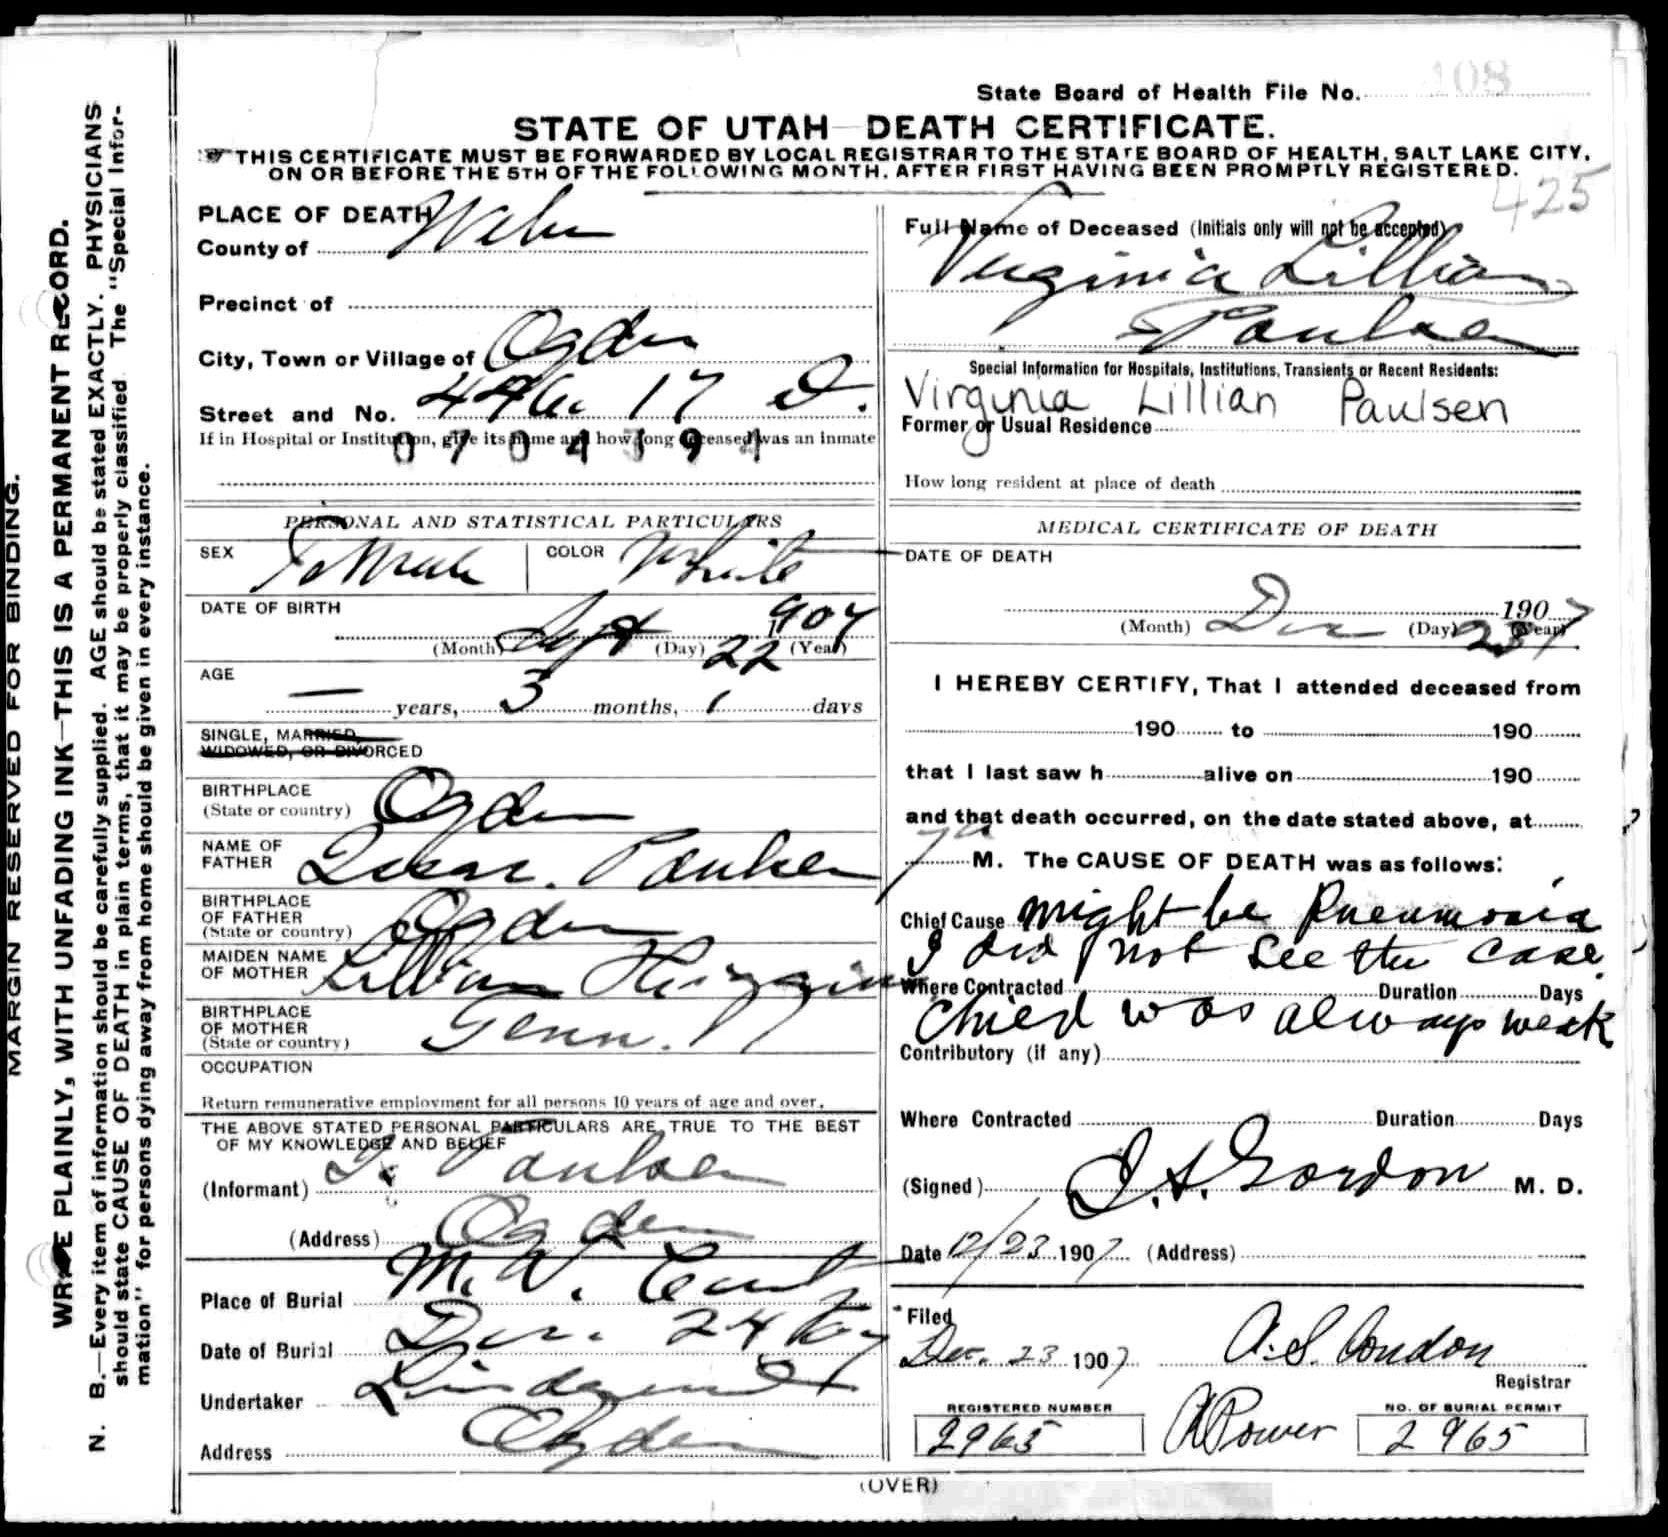 MARGIN RESERVED FOR BINDING.
WRITE PLAINLY, WITH UNFADING INK—THIS IS A PERMANENT RECORD.
N. B.—Every item of information should be carefully supplied. AGE should be stated EXACTLY. PHYSICIANS
should state CAUSE OF DEATH in plain terms, that it may be properly classified. The "Special Infor-
mation" for persons dying away from home should be given in every instance.
State Board of Health File No. 108
STATE OF UTAH—DEATH CERTIFICATE.
THIS CERTIFICATE MUST BE FORWARDED BY LOCAL REGISTRAR TO THE STATE BOARD OF HEALTH, SALT LAKE CITY,
ON OR BEFORE THE 5TH OF THE FOLLOWING MONTH, AFTER FIRST HAVING BEEN PROMPTLY REGISTERED.
425
PLACE OF DEATH
County of Weber
Precinct of
City, Town or Village of Ogden
Street and No. 446 17
If in Hospital or Institution, give its name and how long deceased was an inmate
0704394
PERSONAL AND STATISTICAL PARTICULARS
SEX Female COLOR White
DATE OF BIRTH
(Month) Sept (Day) 22 (Year) 1907
AGE
— years, 3 months, 1 days
SINGLE, MARRIED,
WIDOWED, OR DIVORCED
BIRTHPLACE
(State or country) Ogden
NAME OF
FATHER Oscar Paulsen
BIRTHPLACE
OF FATHER
(State or country) Ogden
MAIDEN NAME
OF MOTHER Lillian Higgins
BIRTHPLACE
OF MOTHER
(State or country) Tenn.
OCCUPATION
Return remunerative employment for all persons 10 years of age and over.
THE ABOVE STATED PERSONAL PARTICULARS ARE TRUE TO THE BEST
OF MY KNOWLEDGE AND BELIEF
(Informant) Paulsen
(Address) Ogden
Place of Burial
Date of Burial Dec. 24
Undertaker Lindquist
Address Ogden
Full Name of Deceased (Initials only will not be accepted)
Virginia Lillian
Paulsen
Special Information for Hospitals, Institutions, Transients or Recent Residents:
Virginia Lillian Paulsen
Former or Usual Residence
How long resident at place of death
MEDICAL CERTIFICATE OF DEATH
DATE OF DEATH
(Month) Dec (Day) 23 1907 (Year)
I HEREBY CERTIFY, That I attended deceased from
190 to 190
that I last saw h alive on 190
and that death occurred, on the date stated above, at
7 a M. The CAUSE OF DEATH was as follows:
Chief Cause might be Pneumonia
I did not see the case
Where Contracted Duration Days
Chied was always weak
Contributory (if any)
Where Contracted Duration Days
(Signed) Gordon M. D.
Date 12/23 1907 (Address)
Filed
Dec. 23 1907 A. S. Condon
Registrar
REGISTERED NUMBER
2965
Power
NO. OF BURIAL PERMIT
2965
(OVER)